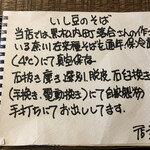 いし豆のそば
当店では、黒松内町落合さんの作る
いる奈川在来種そばを通年保冷庫
(4℃)にて 保存。
石抜き 磨き 選別 脱皮 石臼挽き
(手挽き、電動挽き)にて自家製粉
手打ちにてお出ししてます。